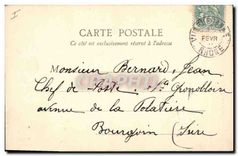 CARTE POSTALE
Ce côté est exclusivement réservé à l'adresse
FEVR
RHÔNE
Monsieur Bernard, Jean
Chef de Poste, St. Grenoltoire
avenue de la Platière
Bourgoin (Isère)